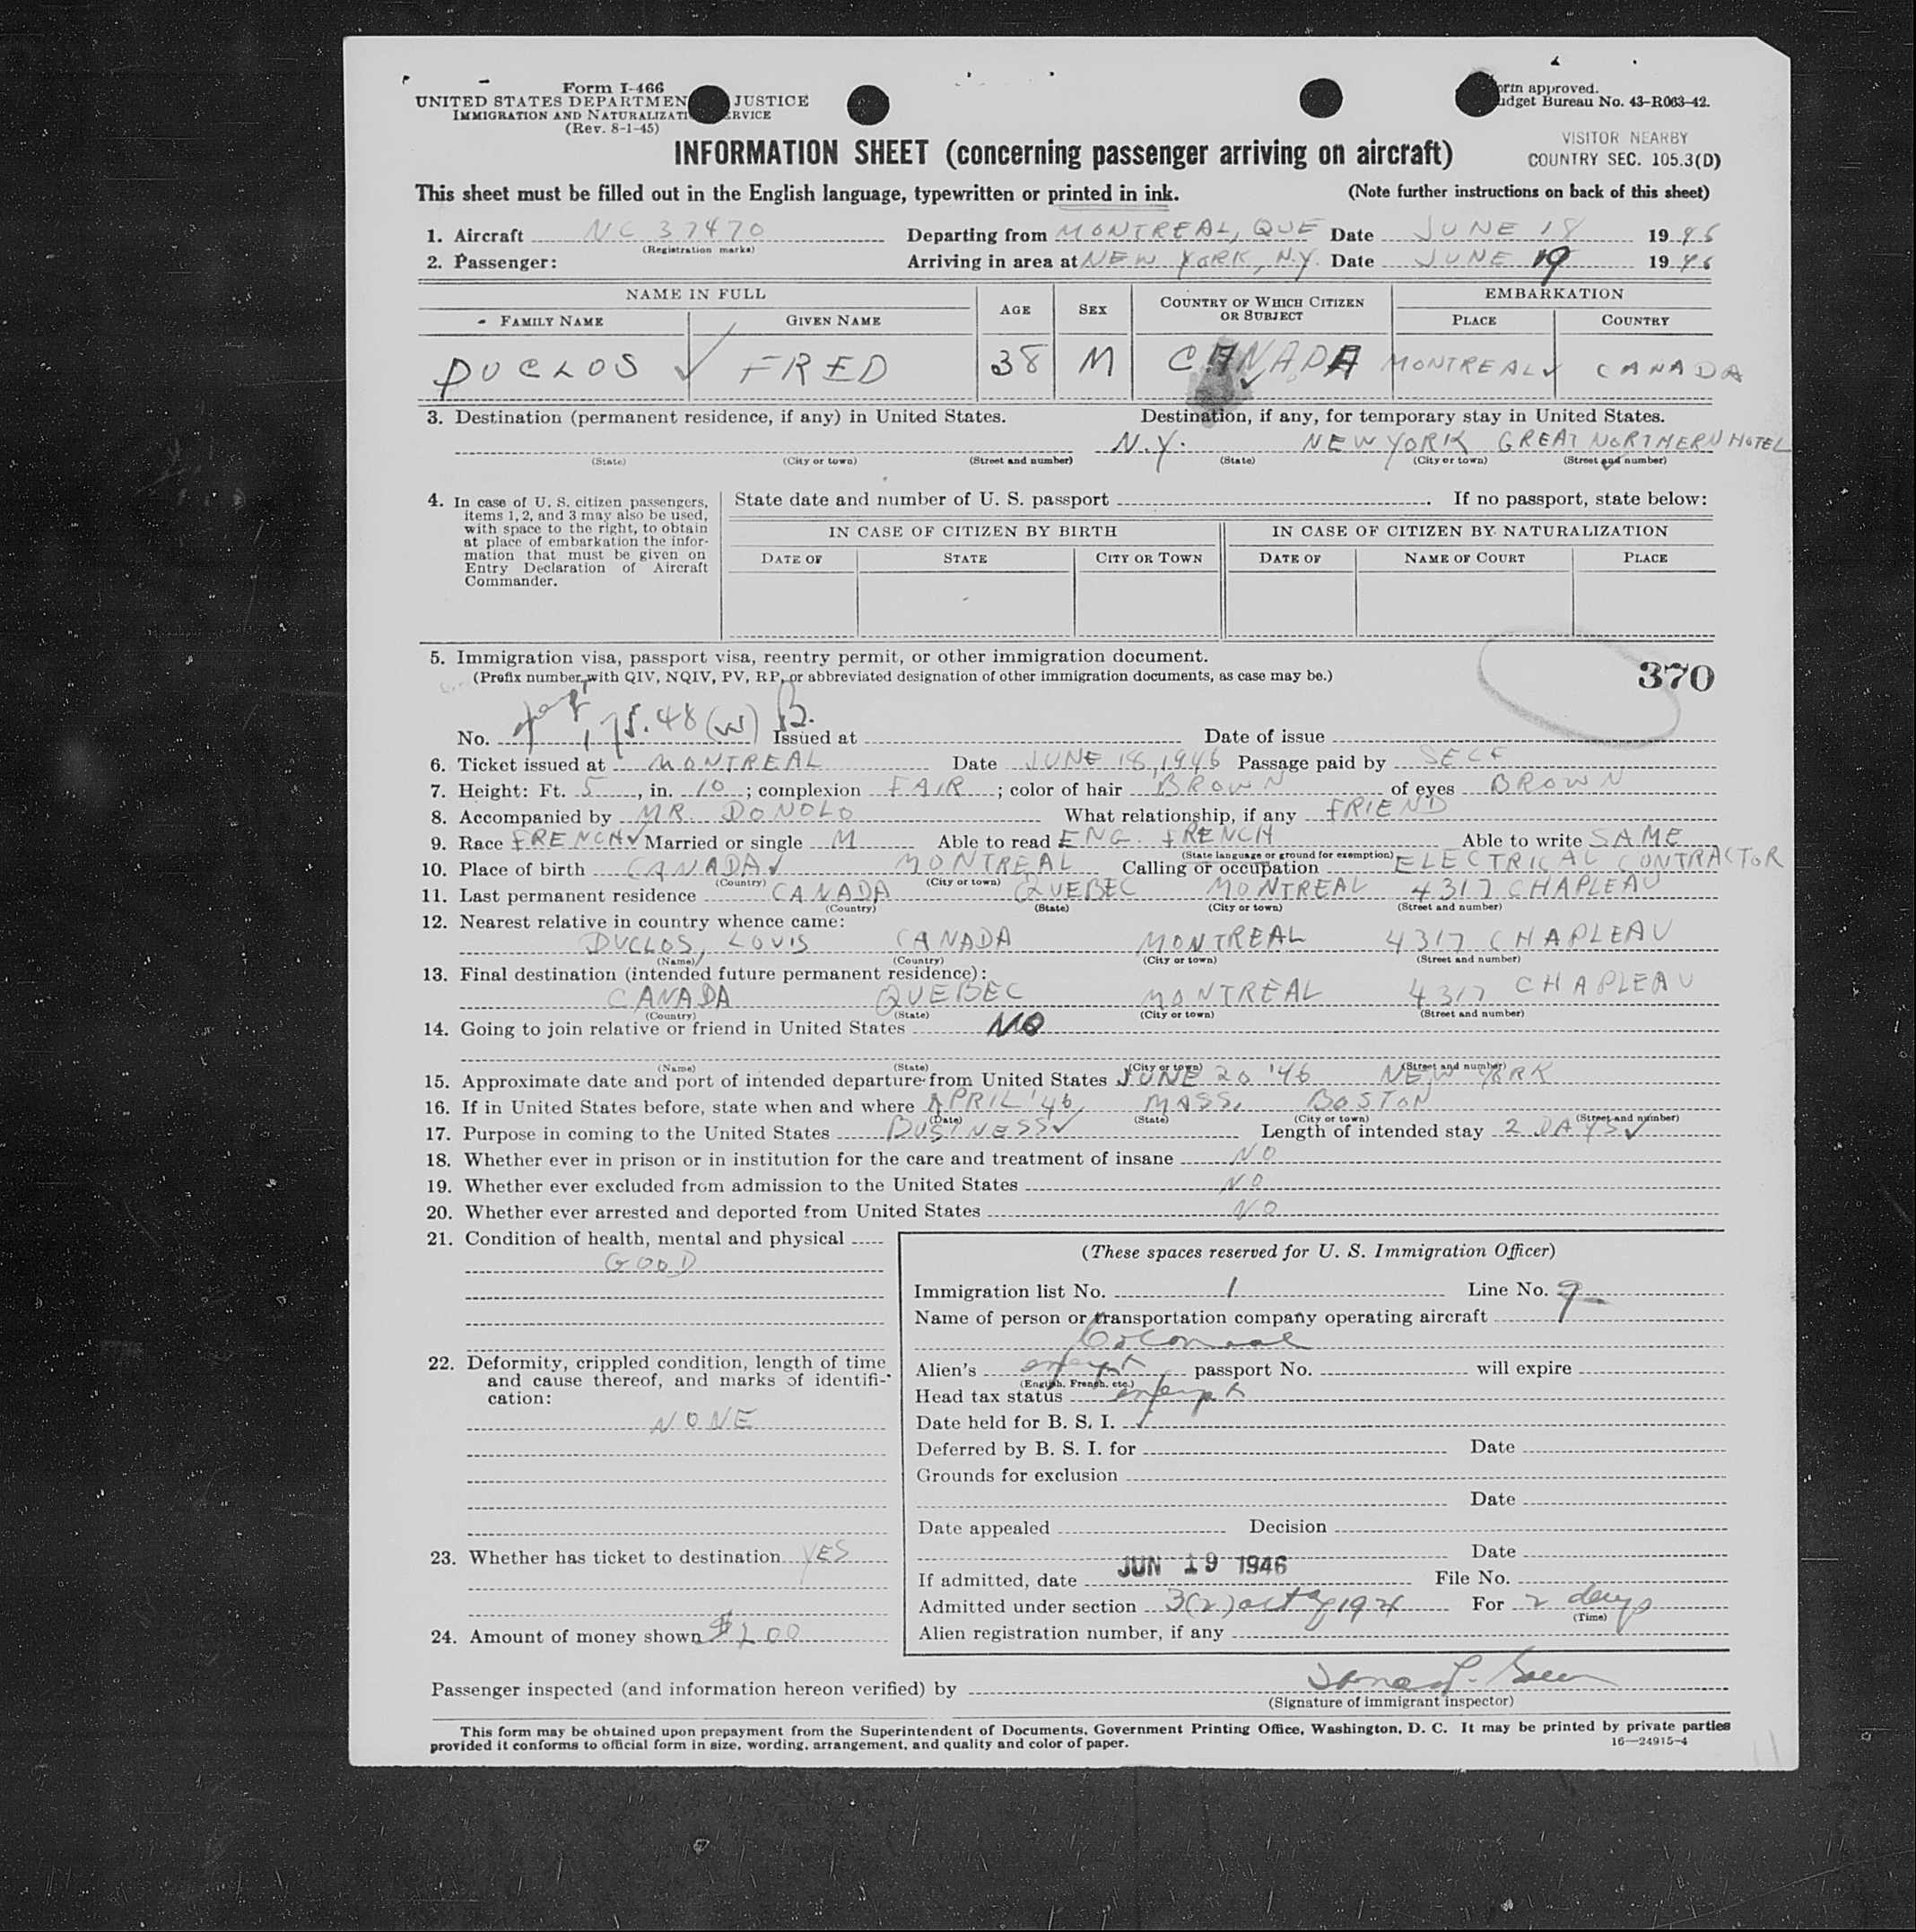 Form I-466
UNITED STATES DEPARTMEN JUSTICE
IMMIGRATION AND NATURALIZATI RVICE
(Rev. 8-1-45)
orm approved.
udget Bureau No. 43-R063-42.
VISITOR NEARBY
COUNTRY SEC. 105.3(D)
INFORMATION SHEET (concerning passenger arriving on aircraft)
This sheet must be filled out in the English language, typewritten or printed in ink. (Note further instructions on back of this sheet)
1. Aircraft NC 37470 Departing from MONTREAL, QUE Date JUNE 18 1946
(Registration marks)
2. Passenger: Arriving in area at NEW YORK, N.Y. Date JUNE 19 1946
NAME IN FULL AGE SEX COUNTRY OF WHICH CITIZEN OR SUBJECT EMBARKATION
FAMILY NAME GIVEN NAME PLACE COUNTRY
DUCLOS FRED 38 M CANADA MONTREAL CANADA
3. Destination (permanent residence, if any) in United States. Destination, if any, for temporary stay in United States.
N.Y. NEW YORK GREAT NORTHERN HOTEL
(State) (City or town) (Street and number) (State) (City or town) (Street and number)
4. In case of U. S. citizen passengers, items 1, 2, and 3 may also be used, with space to the right, to obtain at place of embarkation the information that must be given on Entry Declaration of Aircraft Commander.
State date and number of U. S. passport . If no passport, state below:
IN CASE OF CITIZEN BY BIRTH IN CASE OF CITIZEN BY NATURALIZATION
DATE OF STATE CITY OR TOWN DATE OF NAME OF COURT PLACE
5. Immigration visa, passport visa, reentry permit, or other immigration document.
(Prefix number with QIV, NQIV, PV, RP, or abbreviated designation of other immigration documents, as case may be.)
370
No. 175.48 (W) B. Issued at Date of issue
6. Ticket issued at MONTREAL Date JUNE 18, 1946 Passage paid by SELF
7. Height: Ft. 5, in. 10; complexion FAIR; color of hair BROWN of eyes BROWN
8. Accompanied by MR. DONOLO What relationship, if any FRIEND
9. Race FRENCH Married or single M Able to read ENG. FRENCH Able to write SAME
(State language or ground for exemption)
10. Place of birth CANADA MONTREAL Calling or occupation ELECTRICAL CONTRACTOR
(Country) (City or town)
11. Last permanent residence CANADA QUEBEC MONTREAL 4317 CHAPLEAU
(Country) (State) (City or town) (Street and number)
12. Nearest relative in country whence came:
DUCLOS, LOUIS CANADA MONTREAL 4317 CHAPLEAU
(Name) (Country) (City or town) (Street and number)
13. Final destination (intended future permanent residence):
CANADA QUEBEC MONTREAL 4317 CHAPLEAU
(Country) (State) (City or town) (Street and number)
14. Going to join relative or friend in United States NO
(Name) (State) (City or town) (Street and number)
15. Approximate date and port of intended departure from United States JUNE 20 '46 NEW YORK
16. If in United States before, state when and where APRIL '46 MASS. BOSTON
(Date) (State) (City or town) (Street and number)
17. Purpose in coming to the United States BUSINESS Length of intended stay 2 DAYS
18. Whether ever in prison or in institution for the care and treatment of insane NO
19. Whether ever excluded from admission to the United States NO
20. Whether ever arrested and deported from United States NO
21. Condition of health, mental and physical
GOOD
22. Deformity, crippled condition, length of time
and cause thereof, and marks of identifi-
cation:
NONE
23. Whether has ticket to destination YES
24. Amount of money shown $200
(These spaces reserved for U. S. Immigration Officer)
Immigration list No. 1 Line No. 9
Name of person or transportation company operating aircraft
Colonial
Alien's exempt passport No. will expire
(English, French, etc.)
Head tax status exempt
Date held for B. S. I.
Deferred by B. S. I. for Date
Grounds for exclusion
Date
Date appealed Decision
Date
If admitted, date JUN 19 1946 File No.
Admitted under section 3(2) act of 1924 For 2 days
(Time)
Alien registration number, if any
Passenger inspected (and information hereon verified) by
(Signature of immigrant inspector)
This form may be obtained upon prepayment from the Superintendent of Documents, Government Printing Office, Washington, D. C. It may be printed by private parties
provided it conforms to official form in size, wording, arrangement, and quality and color of paper. 16—24915-4